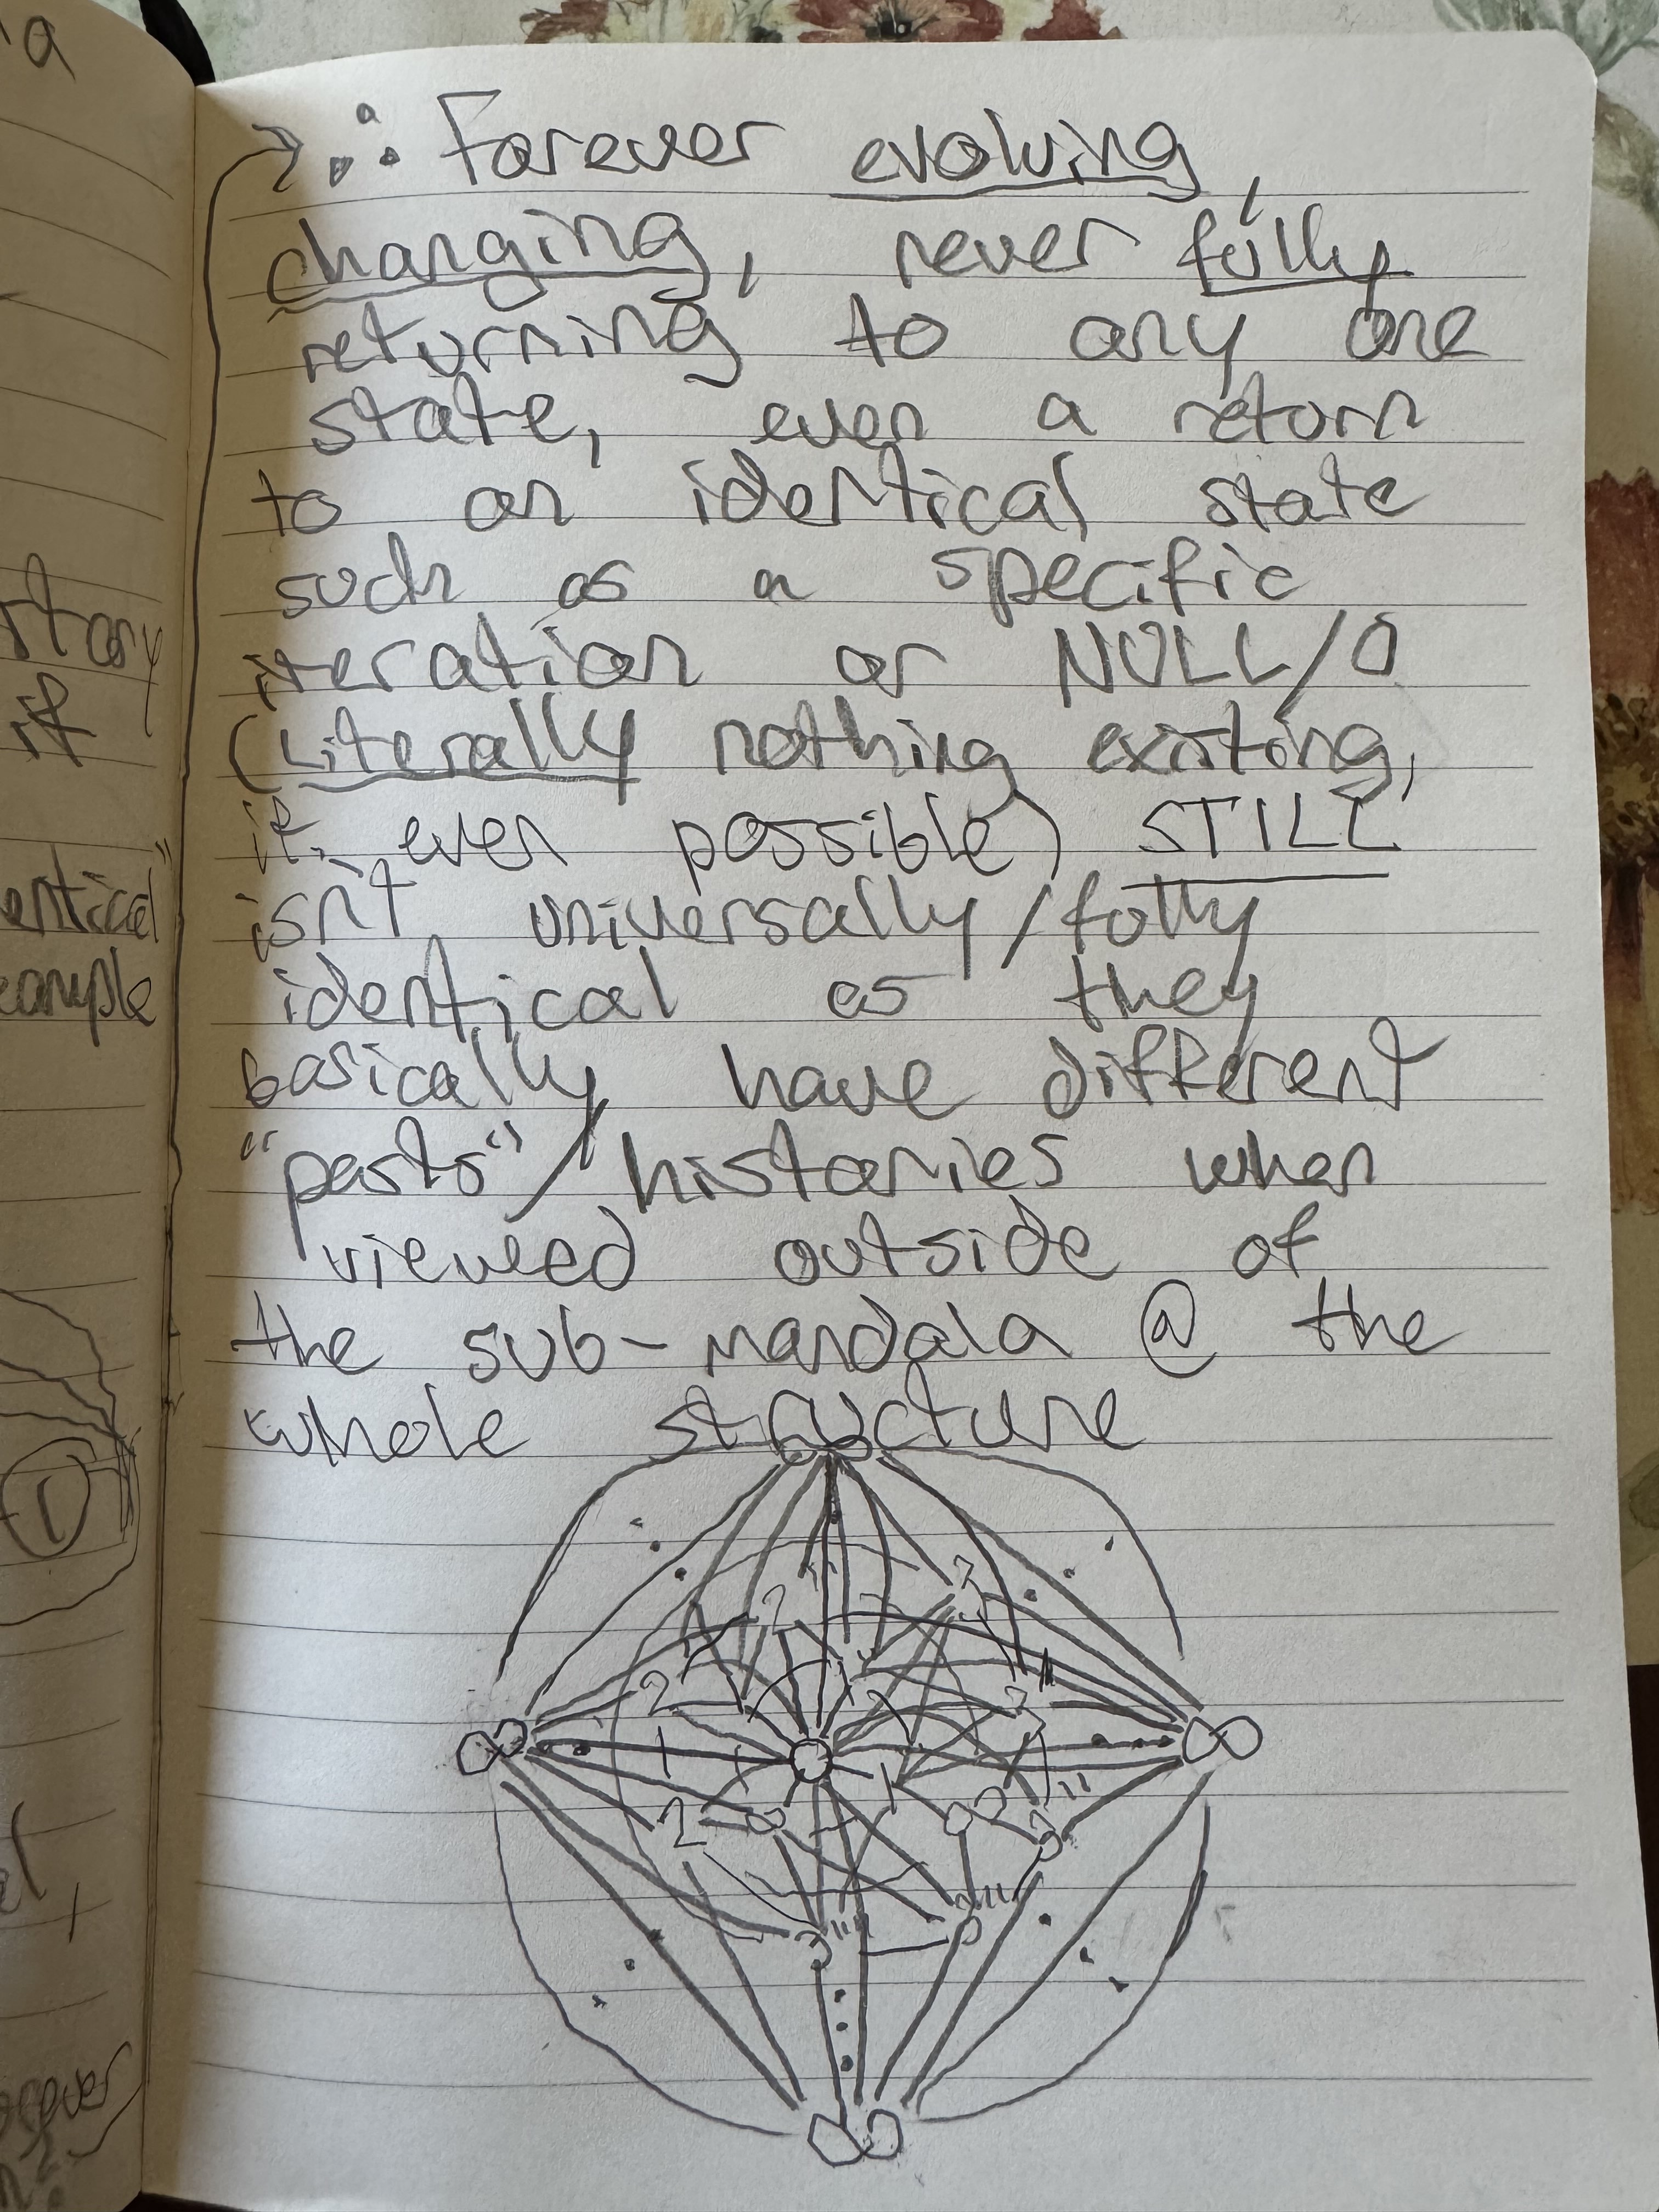 a
story
if
entical"
xample
1
→ ∴ Forever evolving,
changing, never fully
returning to any one
state, even a return
to an identical state
such as a specific
iteration or NULL/0
(Literally nothing existing,
if even possible) STILL
isn't universally/fully
identical as they
basically have different
"pasts"/histories when
viewed outside of
the sub-mandala @ the
whole structure
∞
2 3
2
∞ 1 0 1 ∞
2
3''' 3'''
∞